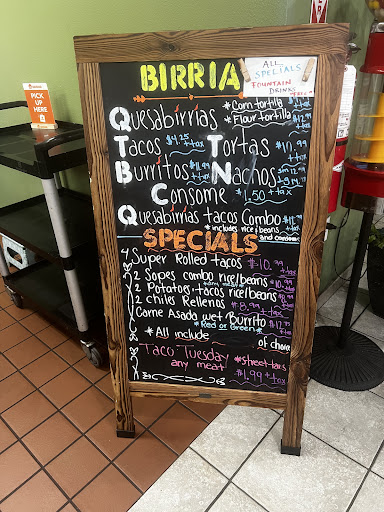 PICK UP HERE
ALL SPECIALS
FOUNTAIN DRINK
FREE
BIRRIA
Quesabirrias *Corn tortilla
*Flour tortilla $12.99 +tax
Tacos $4.25 +tax Tortas $10.99 +tax
Burritos $11.99 +tax Nachos
Consome $1.50 +tax
Quesabirrias tacos Combo
*includes rice/beans and consome
SPECIALS
4 Super Rolled tacos $10.99 +tax
2 Sopes combo rice/beans $10.99
2 Potatoes tacos rice/beans
2 Chiles Rellenos $8.99 +tax
Carne Asada wet Burrito
*Red or Green*
*All include of choice
Taco Tuesday *street tacos
any meat $1.99 +tax